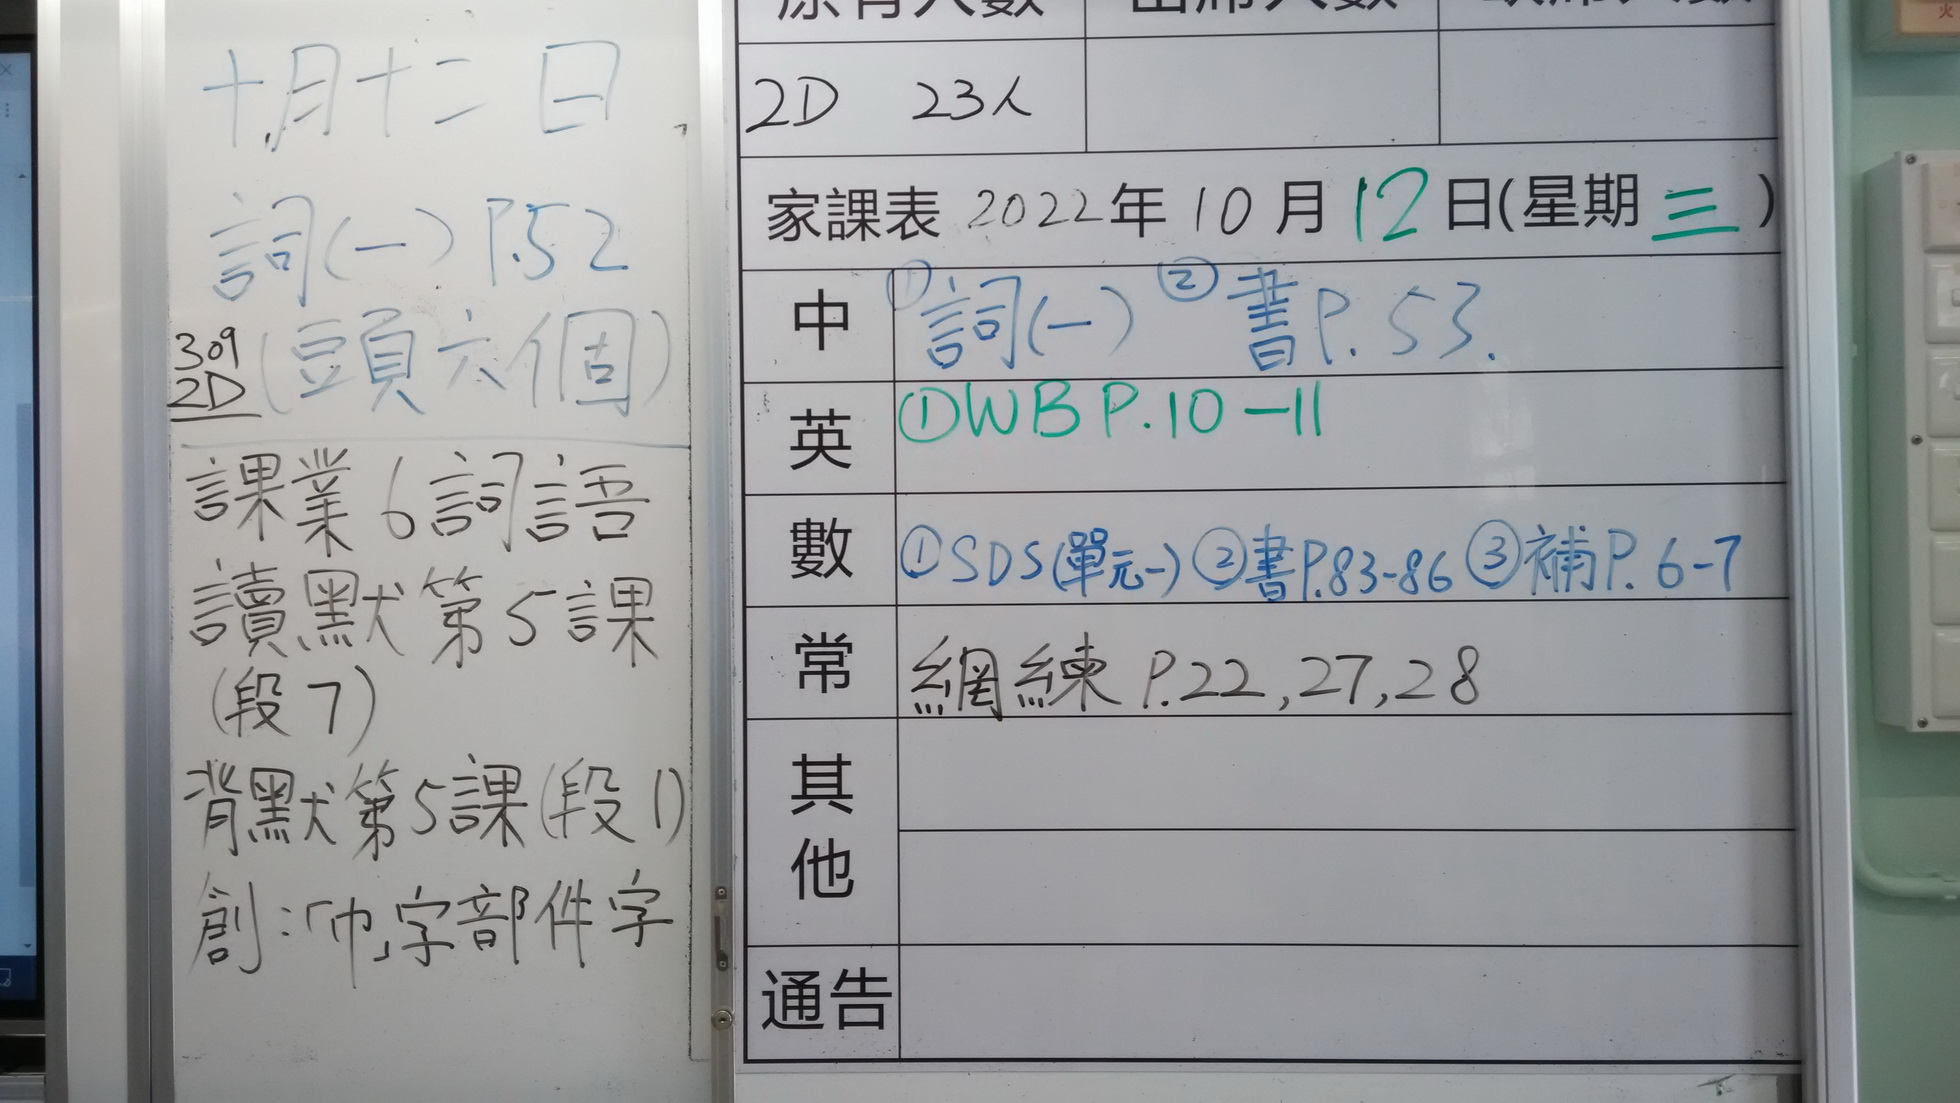 十月十二日
詞(一) P.52
(頭六個)
309
2D
課業6詞語
讀默第5課
(段7)
背默第5課(段1)
創:「巾」字部件字
原有人數 出席人數 缺席人數
2D 23人
家課表 2022年10月12日(星期三)
中 ①詞(一) ②書P.53.
英 ①WB P.10-11
數 ①SDS(單元一) ②書P.83-86 ③補P.6-7
常 網練 P.22,27,28
其他
通告
火